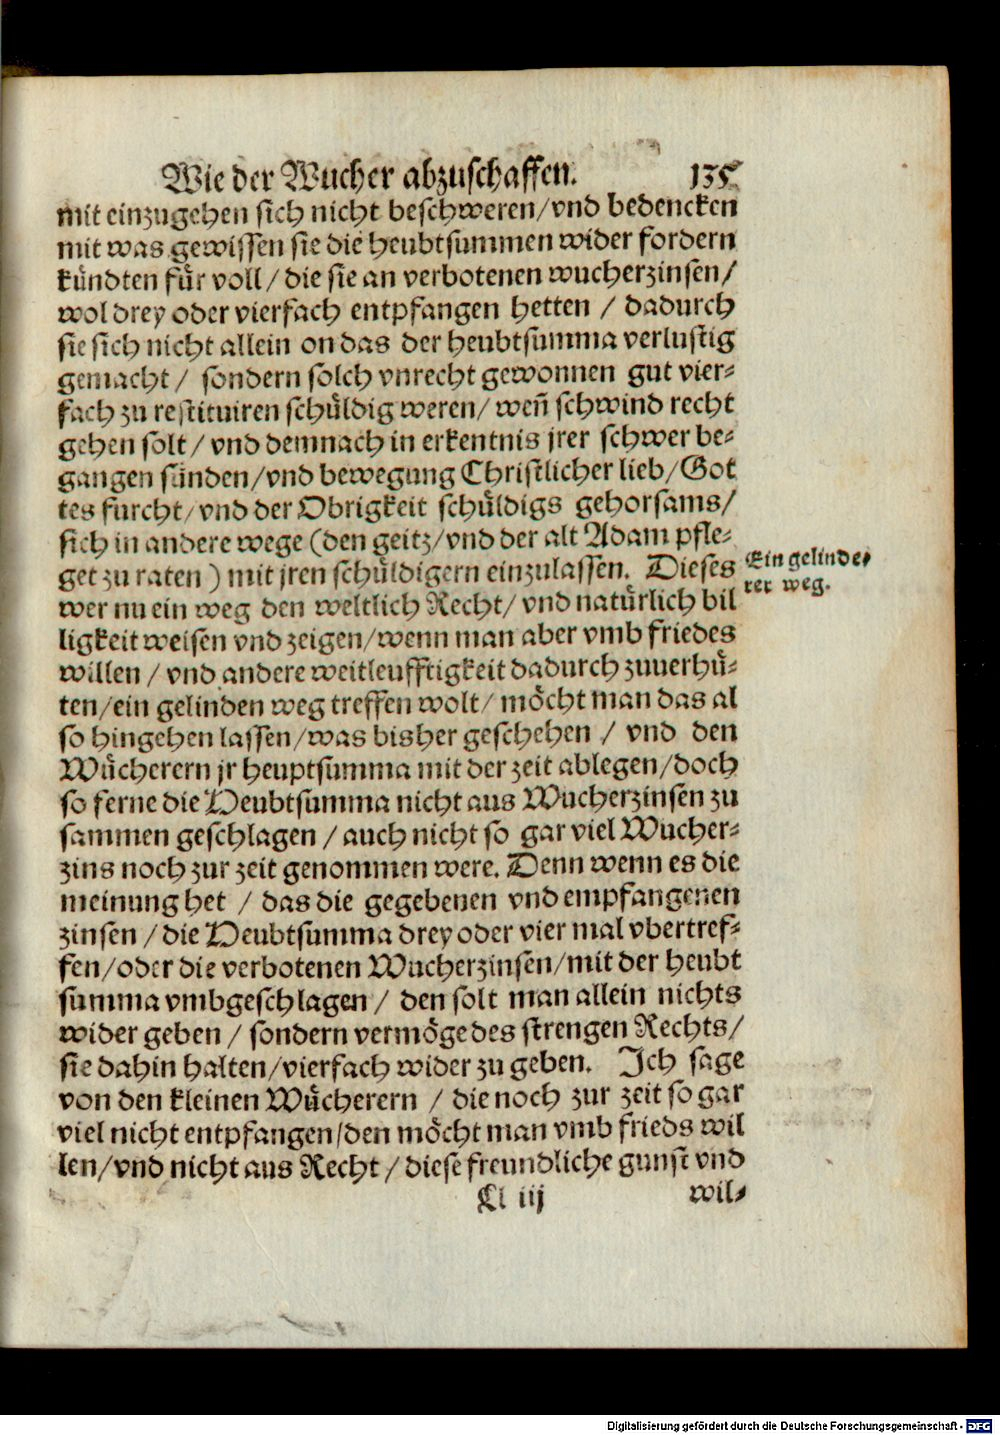 Wie der Wucher abzuschaffen. 135
mit einzugehen sich nicht beschweren/vnd bedencken
mit was gewissen sie die heubtsummen wider fordern
kündten für voll/die sie an verbotenen wucherzinsen/
wol drey oder vierfach entpfangen hetten / dadurch
sie sich nicht allein on das der heubtsumma verlustig
gemacht / sondern solch vnrecht gewonnen gut vier-
fach zu restituiren schüldig weren/weñ schwind recht
gehen solt/vnd demnach in erkentnis jrer schwer be-
gangen sünden/vnd bewegung Christlicher lieb/Got
tes furcht/vnd der Obrigkeit schüldigs gehorsams/
sich in andere wege (den geitz/vnd der alt Adam pfle-
get zu raten) mit jren schüldigern einzulassen. Dieses
Ein gelinde-
rer weg.
wer nu ein weg den weltlich Recht/vnd natürlich bil
ligkeit weisen vnd zeigen/wenn man aber vmb friedes
willen / vnd andere weitleufftigkeit dadurch zuuerhü-
ten/ein gelinden weg treffen wolt/möcht man das al
so hingehen lassen/was bisher geschehen / vnd den
Wücherern jr heuptsumma mit der zeit ablegen/doch
so ferne die Heubtsumma nicht aus Wucherzinsen zu
sammen geschlagen / auch nicht so gar viel Wucher-
zins noch zur zeit genommen were. Denn wenn es die
meinung het / das die gegebenen vnd empfangenen
zinsen / die Heubtsumma drey oder vier mal vbertref-
fen/oder die verbotenen Wucherzinsen/mit der heubt
summa vmbgeschlagen / den solt man allein nichts
wider geben / sondern vermöge des strengen Rechts/
sie dahin halten/vierfach wider zu geben. Ich sage
von den kleinen Wücherern / die noch zur zeit so gar
viel nicht entpfangen/den möcht man vmb frieds wil
len/vnd nicht aus Recht / diese freundliche gunst vnd
Ll iij wil-
Digitalisierung gefördert durch die Deutsche Forschungsgemeinschaft - DFG